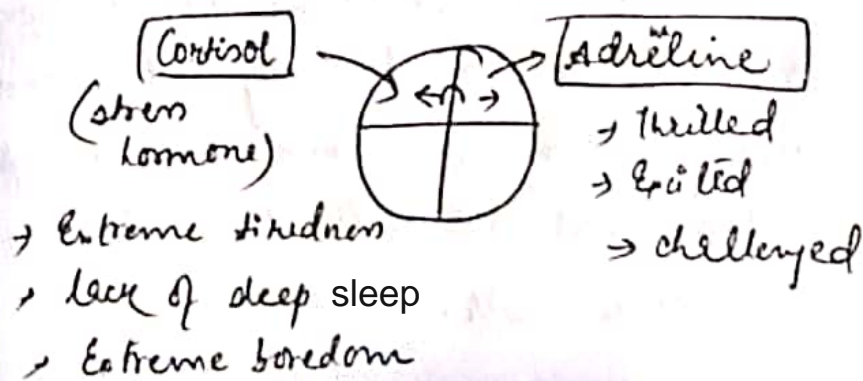 Cortisol
(stress
hormone)
→ Extreme tiredness
→ lack of deep sleep
→ Extreme boredom
Adreline
→ Thrilled
→ Exited
→ challenged